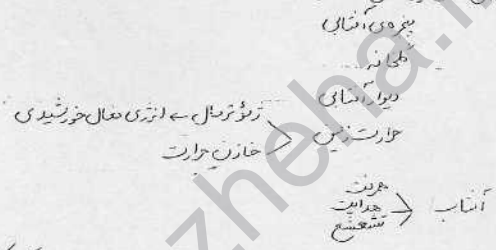 پنجره‌ی آفتابی
گلخانه
دیوار آفتابی
حرارت زمین > ژئوترمال ← انرژی فعال خورشیدی
خازن حرارت
آفتاب > جهت
هدایت
تشعشع